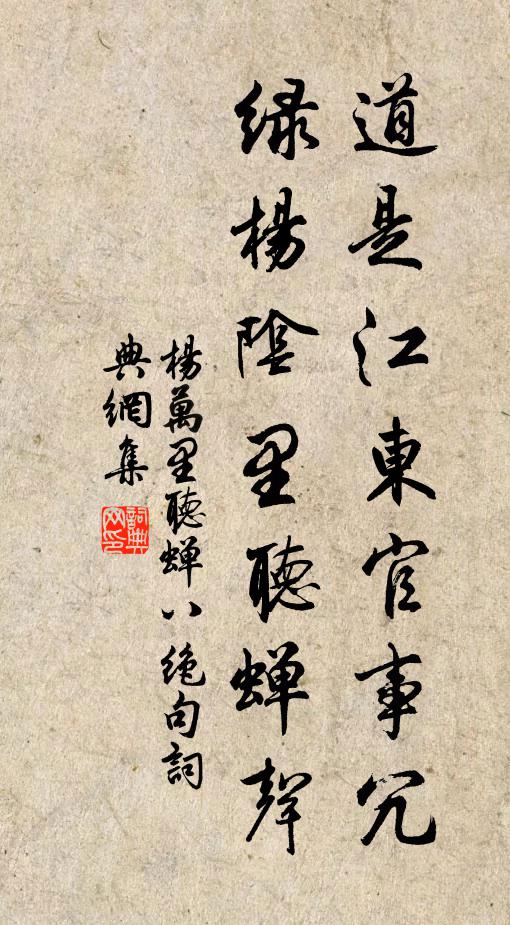 道是江東官事冗
綠楊陰里聽蟬聲
楊萬里聽蟬八絕句詞
典網集
詞典
网印